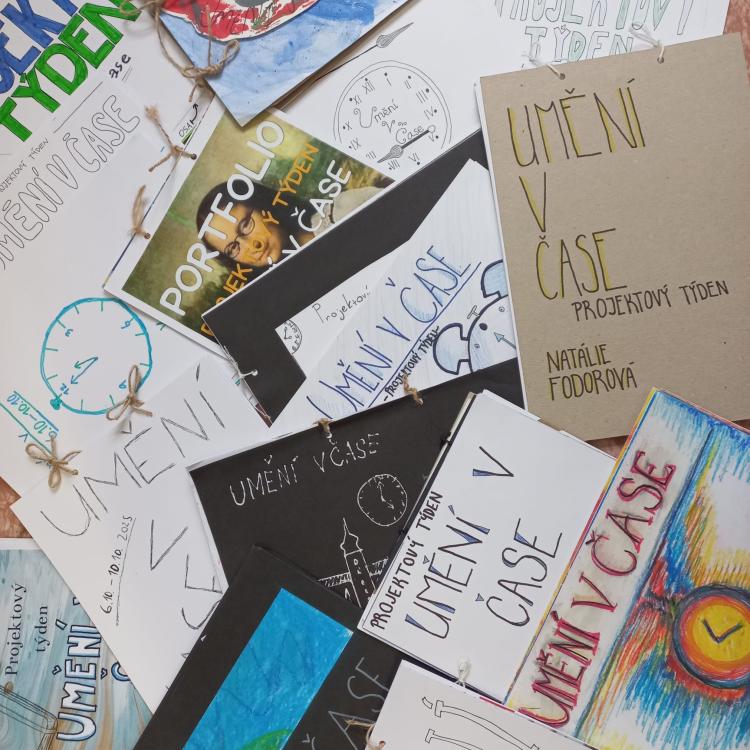 TÝDEN
PROJEKTOVÝ
TÝDEN
UMĚNÍ V ČASE
XII
Umění
v
Čase
PORTFOLIO
PROJEK
Ý TÝDEN
V ČASE
UMĚNÍ
V
ČASE
PROJEKTOVÝ TÝDEN
NATÁLIE
FODOROVÁ
Projektový
UMĚNÍ V ČASE
-PROJEKTOVÝ TÝDEN-
12
6.10.-10.10.
UMĚNÍ
V
6.10.-10.10.2025
UMĚNÍ V ČASE
PROJEKTOVÝ TÝDEN
UMĚNÍ V
ČASE
UMĚNÍ V ČASE
Projektový
týden
UMĚNÍ
ČASE